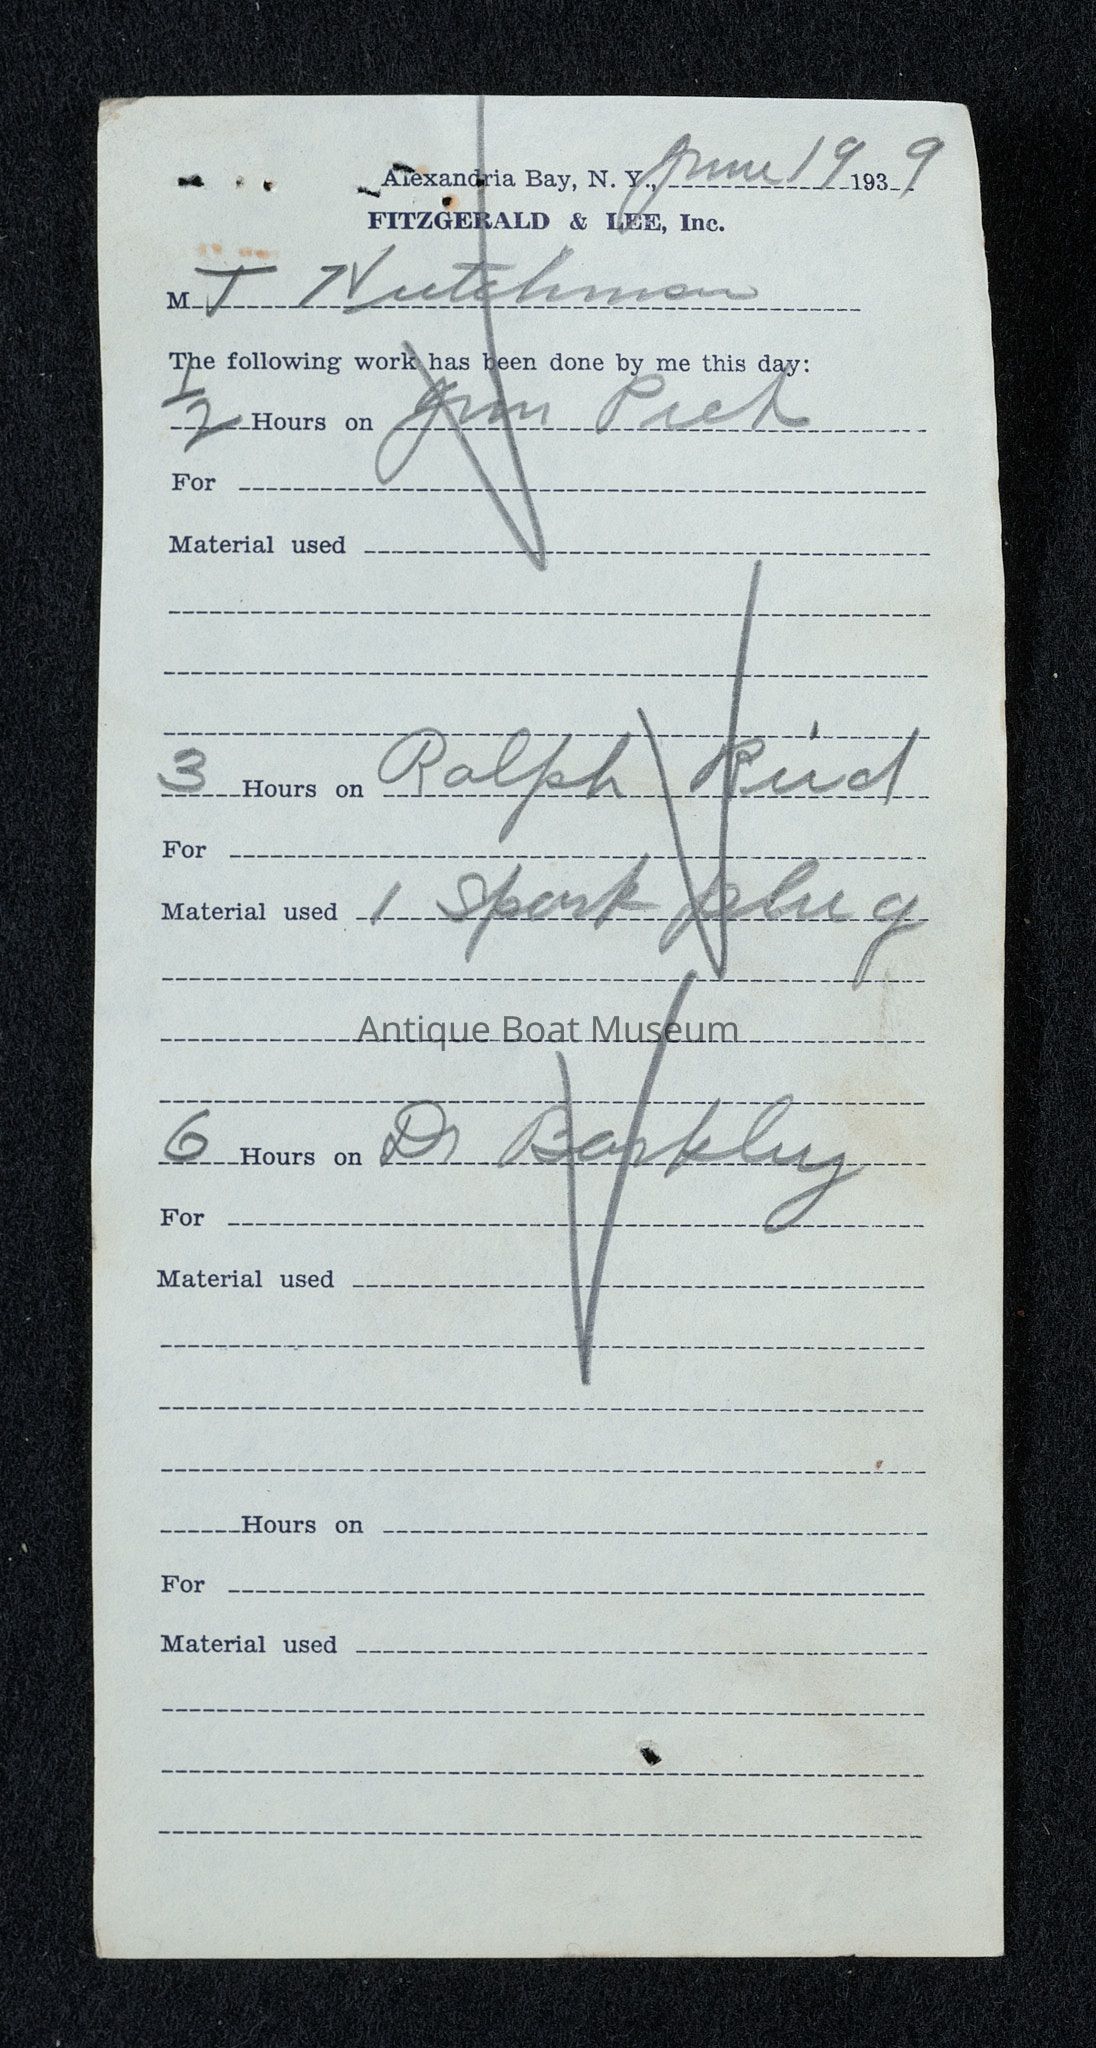 Alexandria Bay, N. Y., June 19 1939
FITZGERALD & LEE, Inc.
M T Hutchman
The following work has been done by me this day:
1/2 Hours on Jim
For
Material used
3 Hours on Ralph
For
Material used 1 spark plug
Antique Boat Museum
6 Hours on Dr Barkley
For
Material used
Hours on
For
Material used